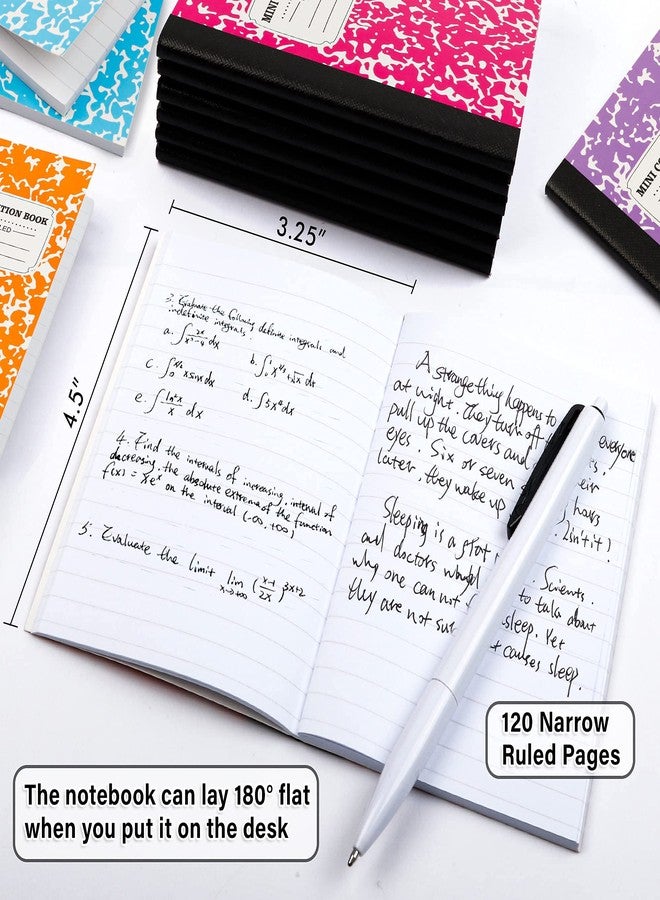 MINI
MINI C
TION BOOK
LED
3.25"
4.5"
3. Evaluate the following definite integrals and
indefinite integrals.
a. ∫ 2x/(x²-4) dx
b. ∫₀¹ x⁴ᐟ⁵+√x dx
c. ∫ x sinx dx
d. ∫ 5x⁶ dx
e. ∫ ln²x/x dx
4. Find the intervals of increasing, interval of
decreasing, the absolute extreme of the function
f(x) = xeˣ on the interval (-∞, +∞)
5. Evaluate the limit lim x→+∞ (x-1/2x)3x+2
A strange thing happens to everyone
at night. They turn off
pull up the covers and eir
eyes. Six or seven hours
later, they wake up Isn't it?
Sleeping is a great Scients.
and doctors to talk about
why one can not sleep. Yet
they are not sur t causes sleep.
120 Narrow
Ruled Pages
The notebook can lay 180° flat
when you put it on the desk